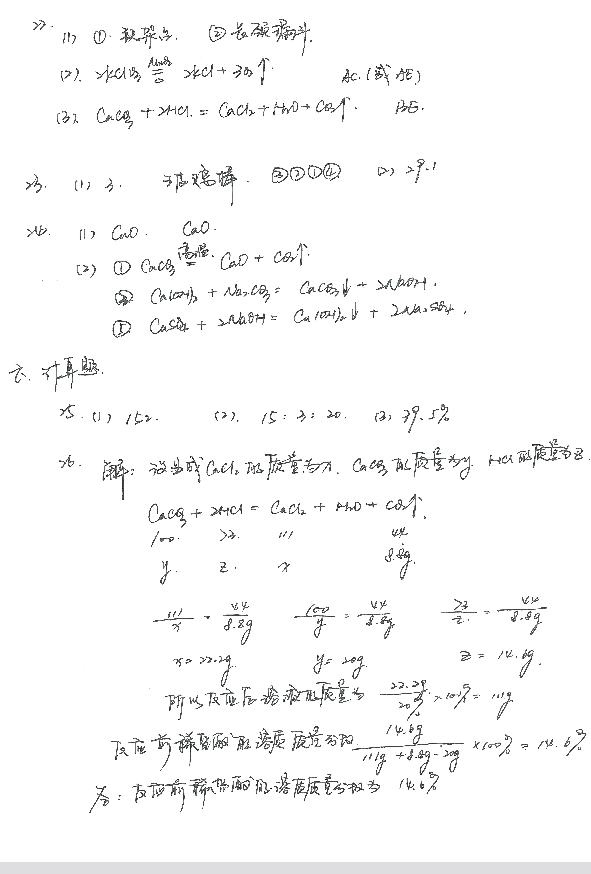 22. (1) ① 铁架台. ② 长颈漏斗.
(2). 2KClO3 =MnO2 △= 2KCl + 3O2↑ AC (或 AE)
(3). CaCO3 + 2HCl = CaCl2 + H2O + CO2↑. BE.
23. (1) 3. 玻璃棒. ③②①④ (2) 29.1
24. (1) CaO. CaO.
(2) ① CaCO3 =高温= CaO + CO2↑.
② Ca(OH)2 + Na2CO3 = CaCO3↓ + 2NaOH.
CaSO4 + 2NaOH = Ca(OH)2↓ + 2Na2SO4.
六. 计算题.
25. (1) 152. (2). 15 : 3 : 20. (3) 39.5%
26. 解: 设生成CaCl2的质量为x. CaCO3的质量为y. HCl的质量为z.
CaCO3 + 2HCl = CaCl2 + H2O + CO2↑.
100. 73. 111 44
y. z. x 8.8g.
111/x = 44/8.8g 100/y = 44/8.8g 73/z = 44/8.8g
x = 22.2g y = 20g z = 14.6g.
所以反应后溶液的质量为 22.2g/20% × 100% = 111g
反应前稀盐酸的溶质质量分数 14.6g/(111g + 8.8g - 20g) × 100% = 14.6%
答: 反应前稀盐酸的溶质质量分数为 14.6%